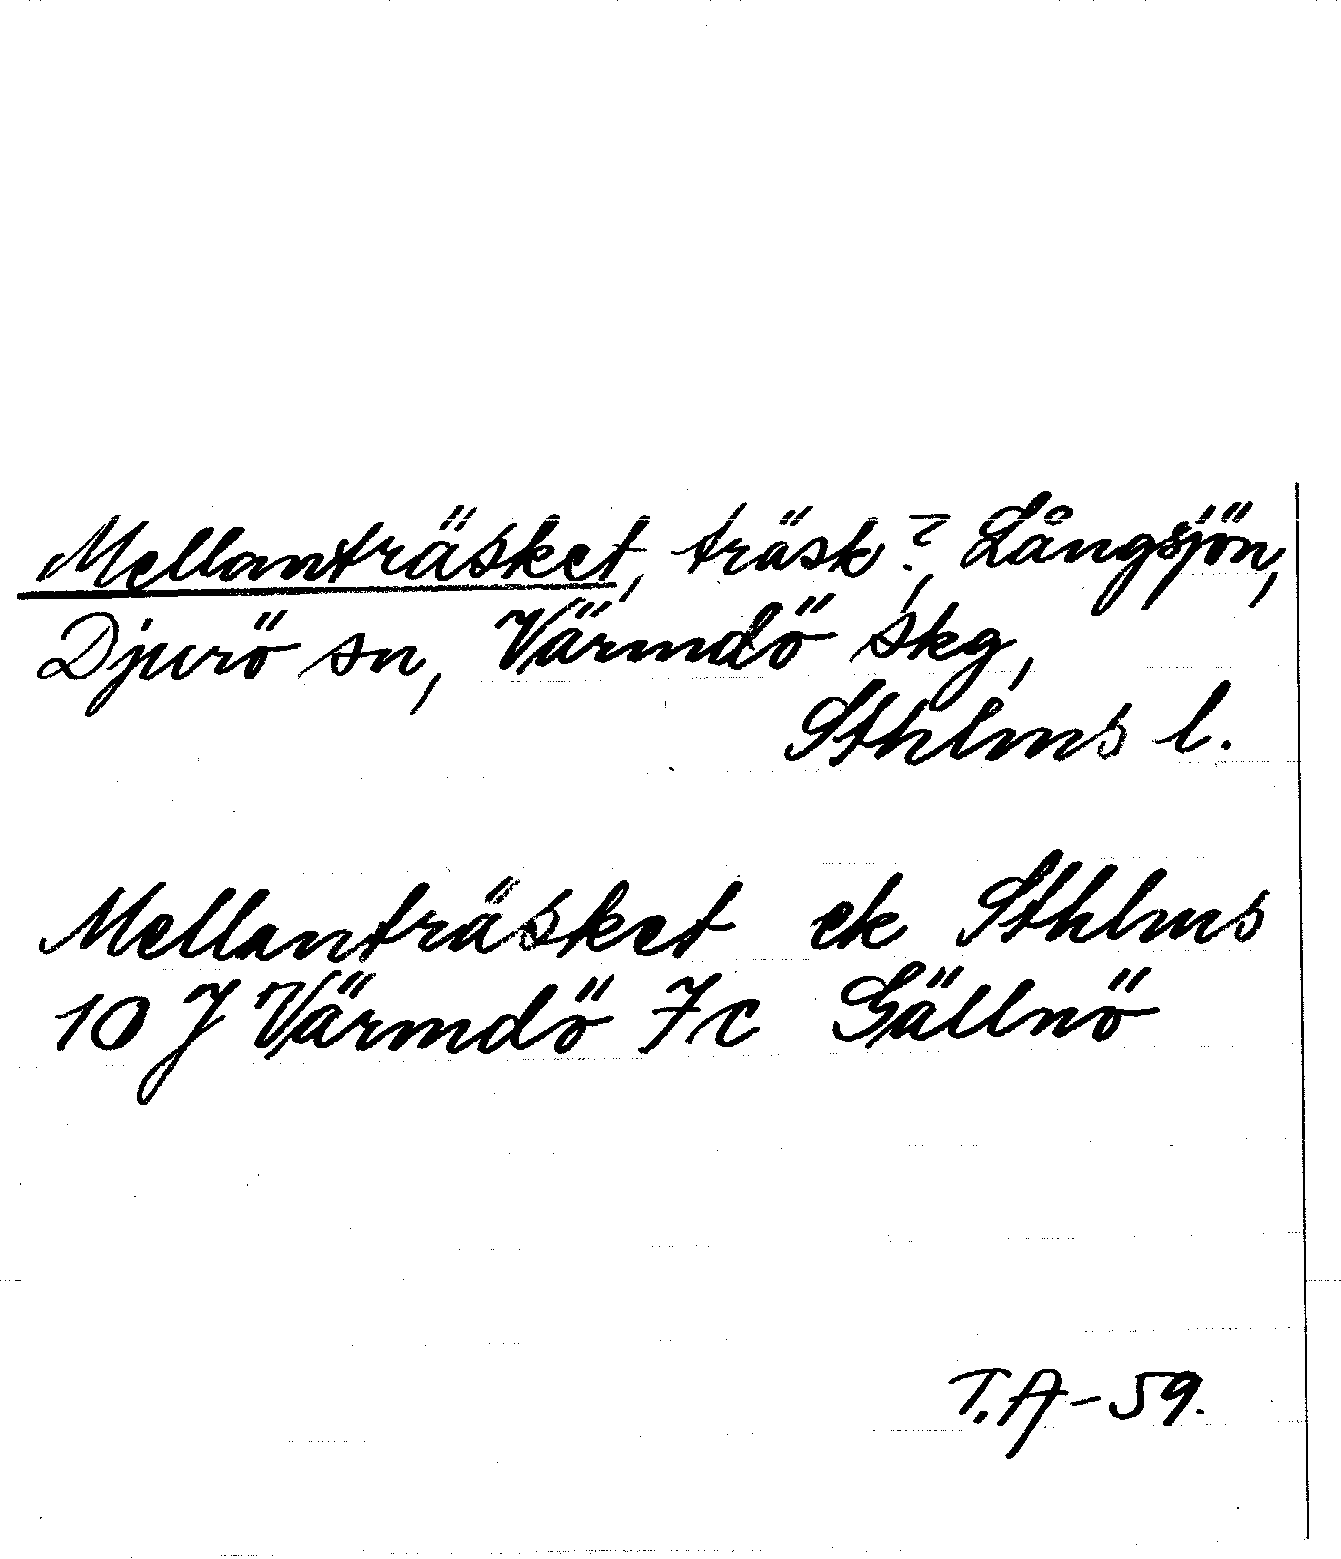 Mellanträsket, träsk?, Långsjön,
Djurö sn, Värmdö skg,
Sthlms l.
Mellanträsket ek Sthlms
10 J Värmdö 7c Gällnö
T.A-59.